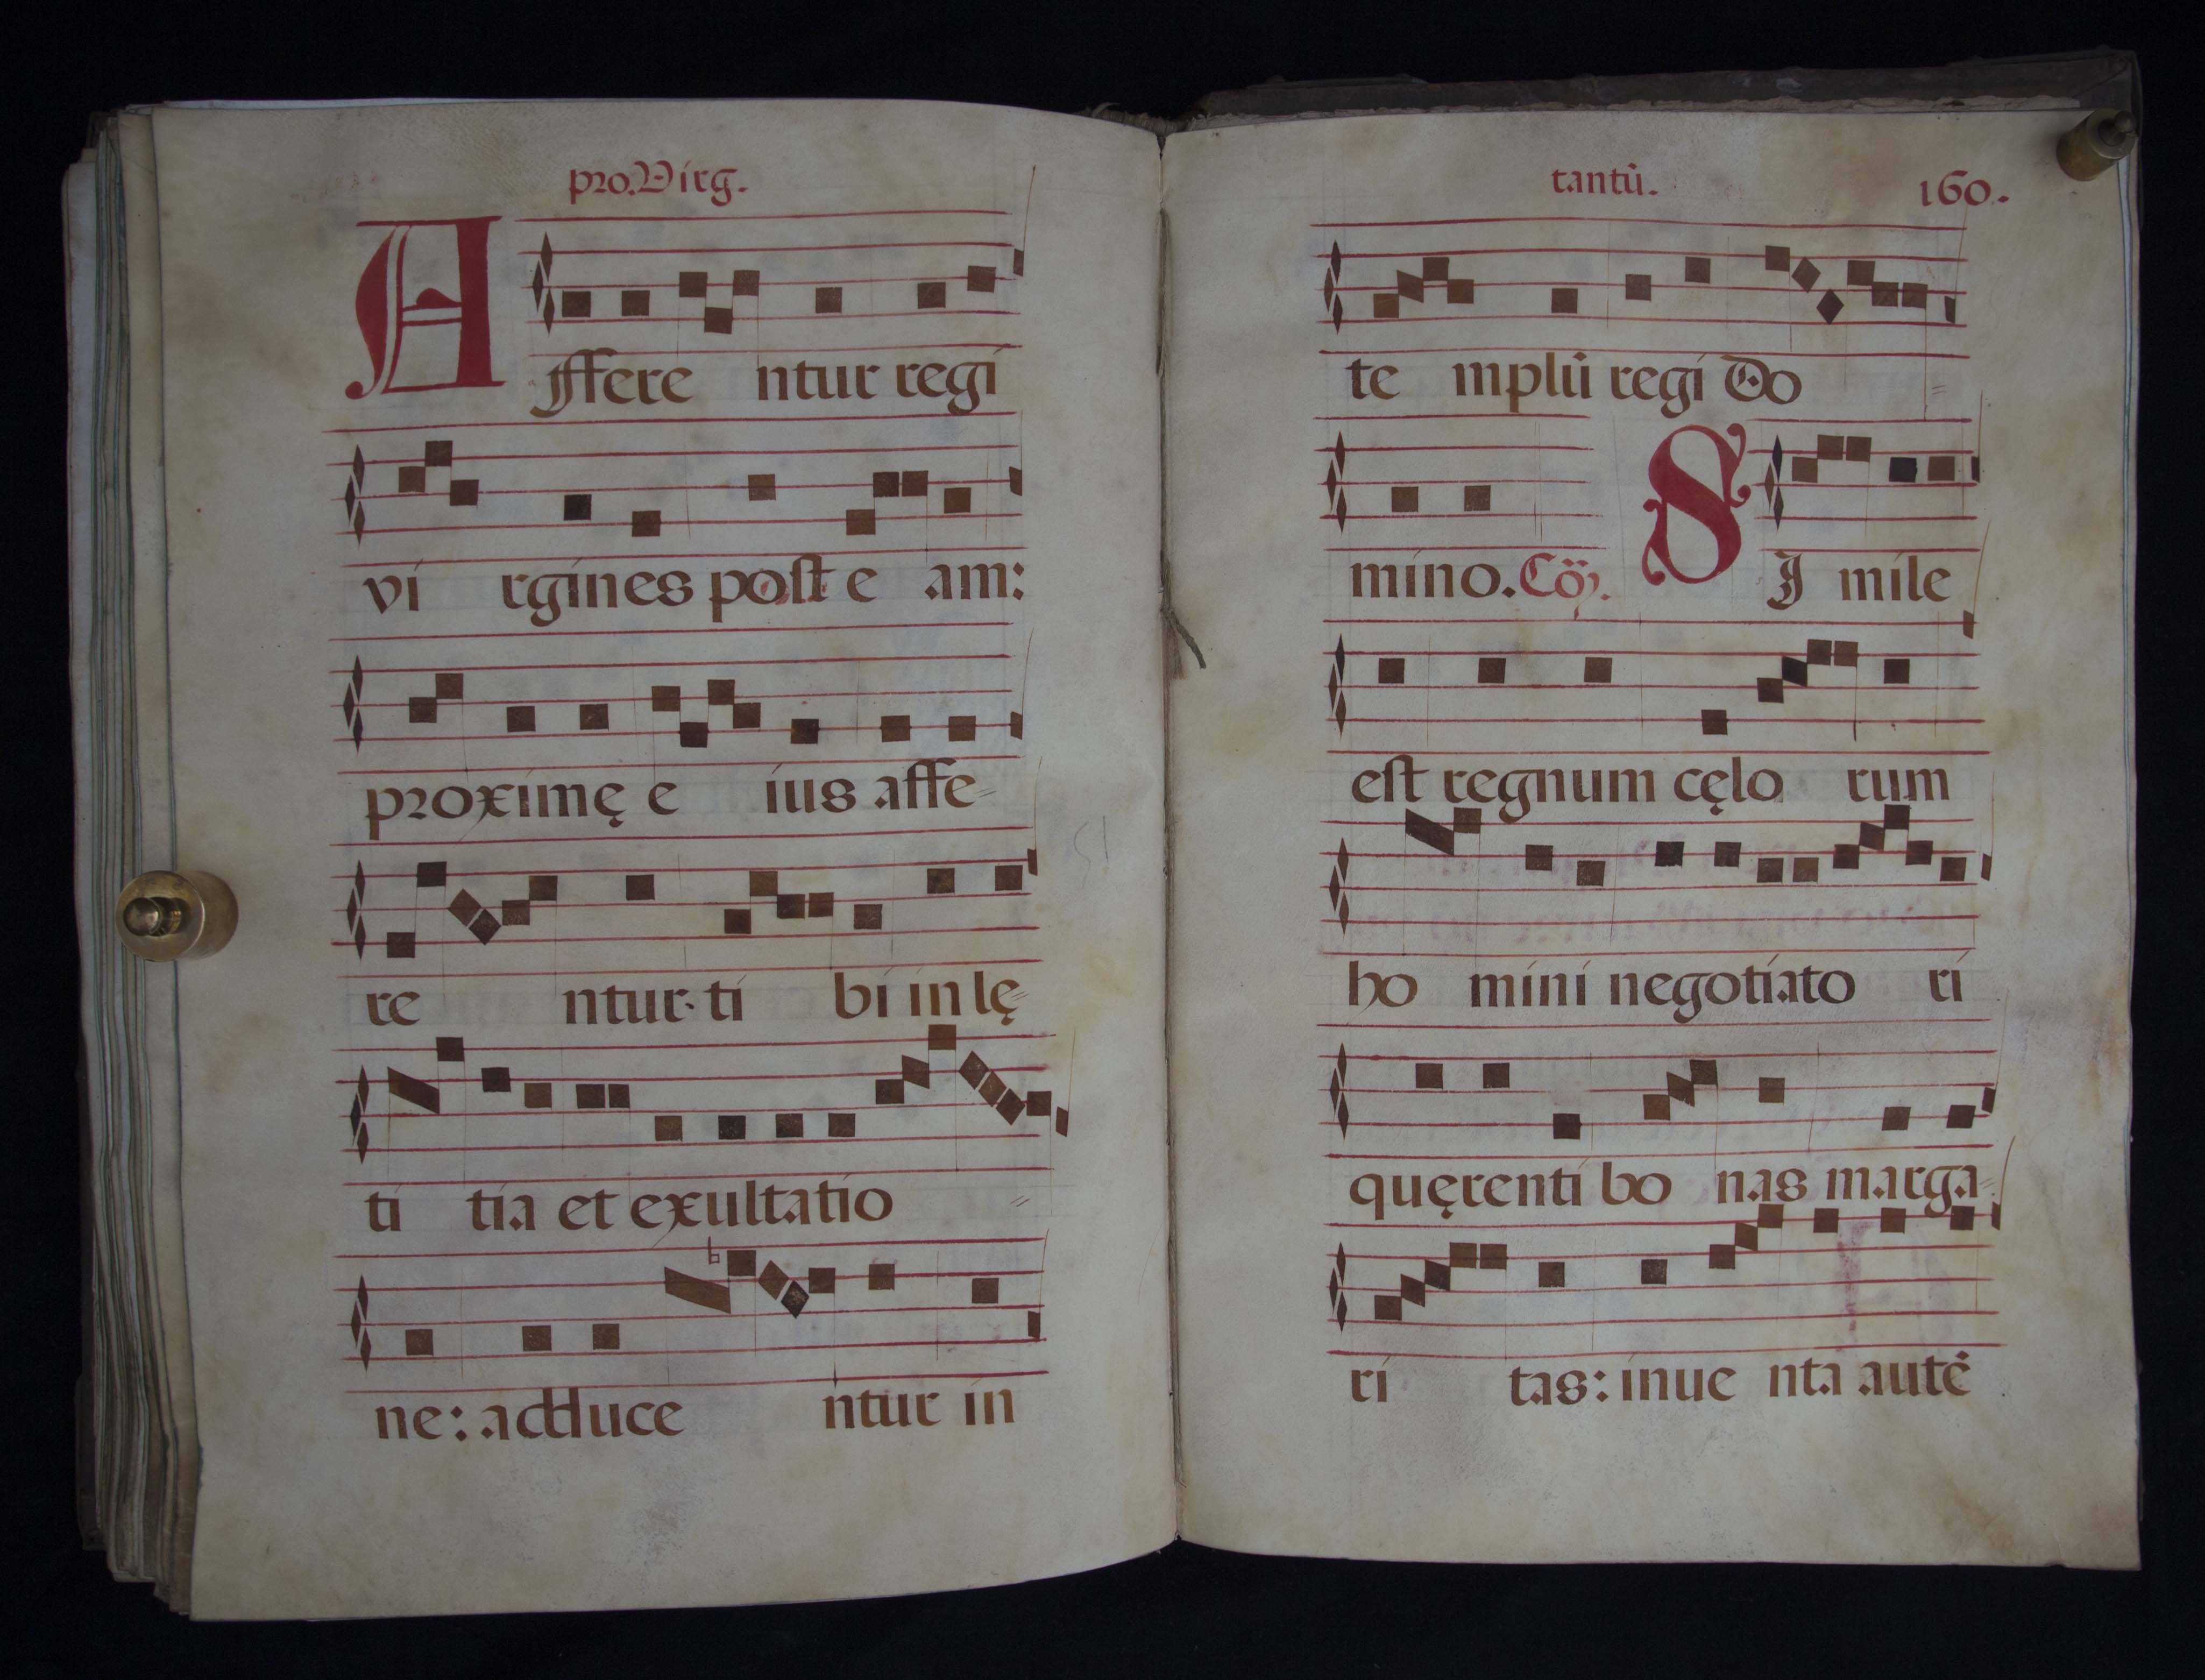 pro. Virg.
Affere ntur regi
vi rgines post e am:
proximę e ius affe=
re ntur. ti bi in lę=
ti tia et exultatio =
ne: adduce ntur in
tantũ. 160.
te mplũ regi Do =
mino. Cõ. SI mile
est regnum cęlo rum
ho mini negotiato ri
quęrenti bo nas marga=
ri tas: inue nta autẽ